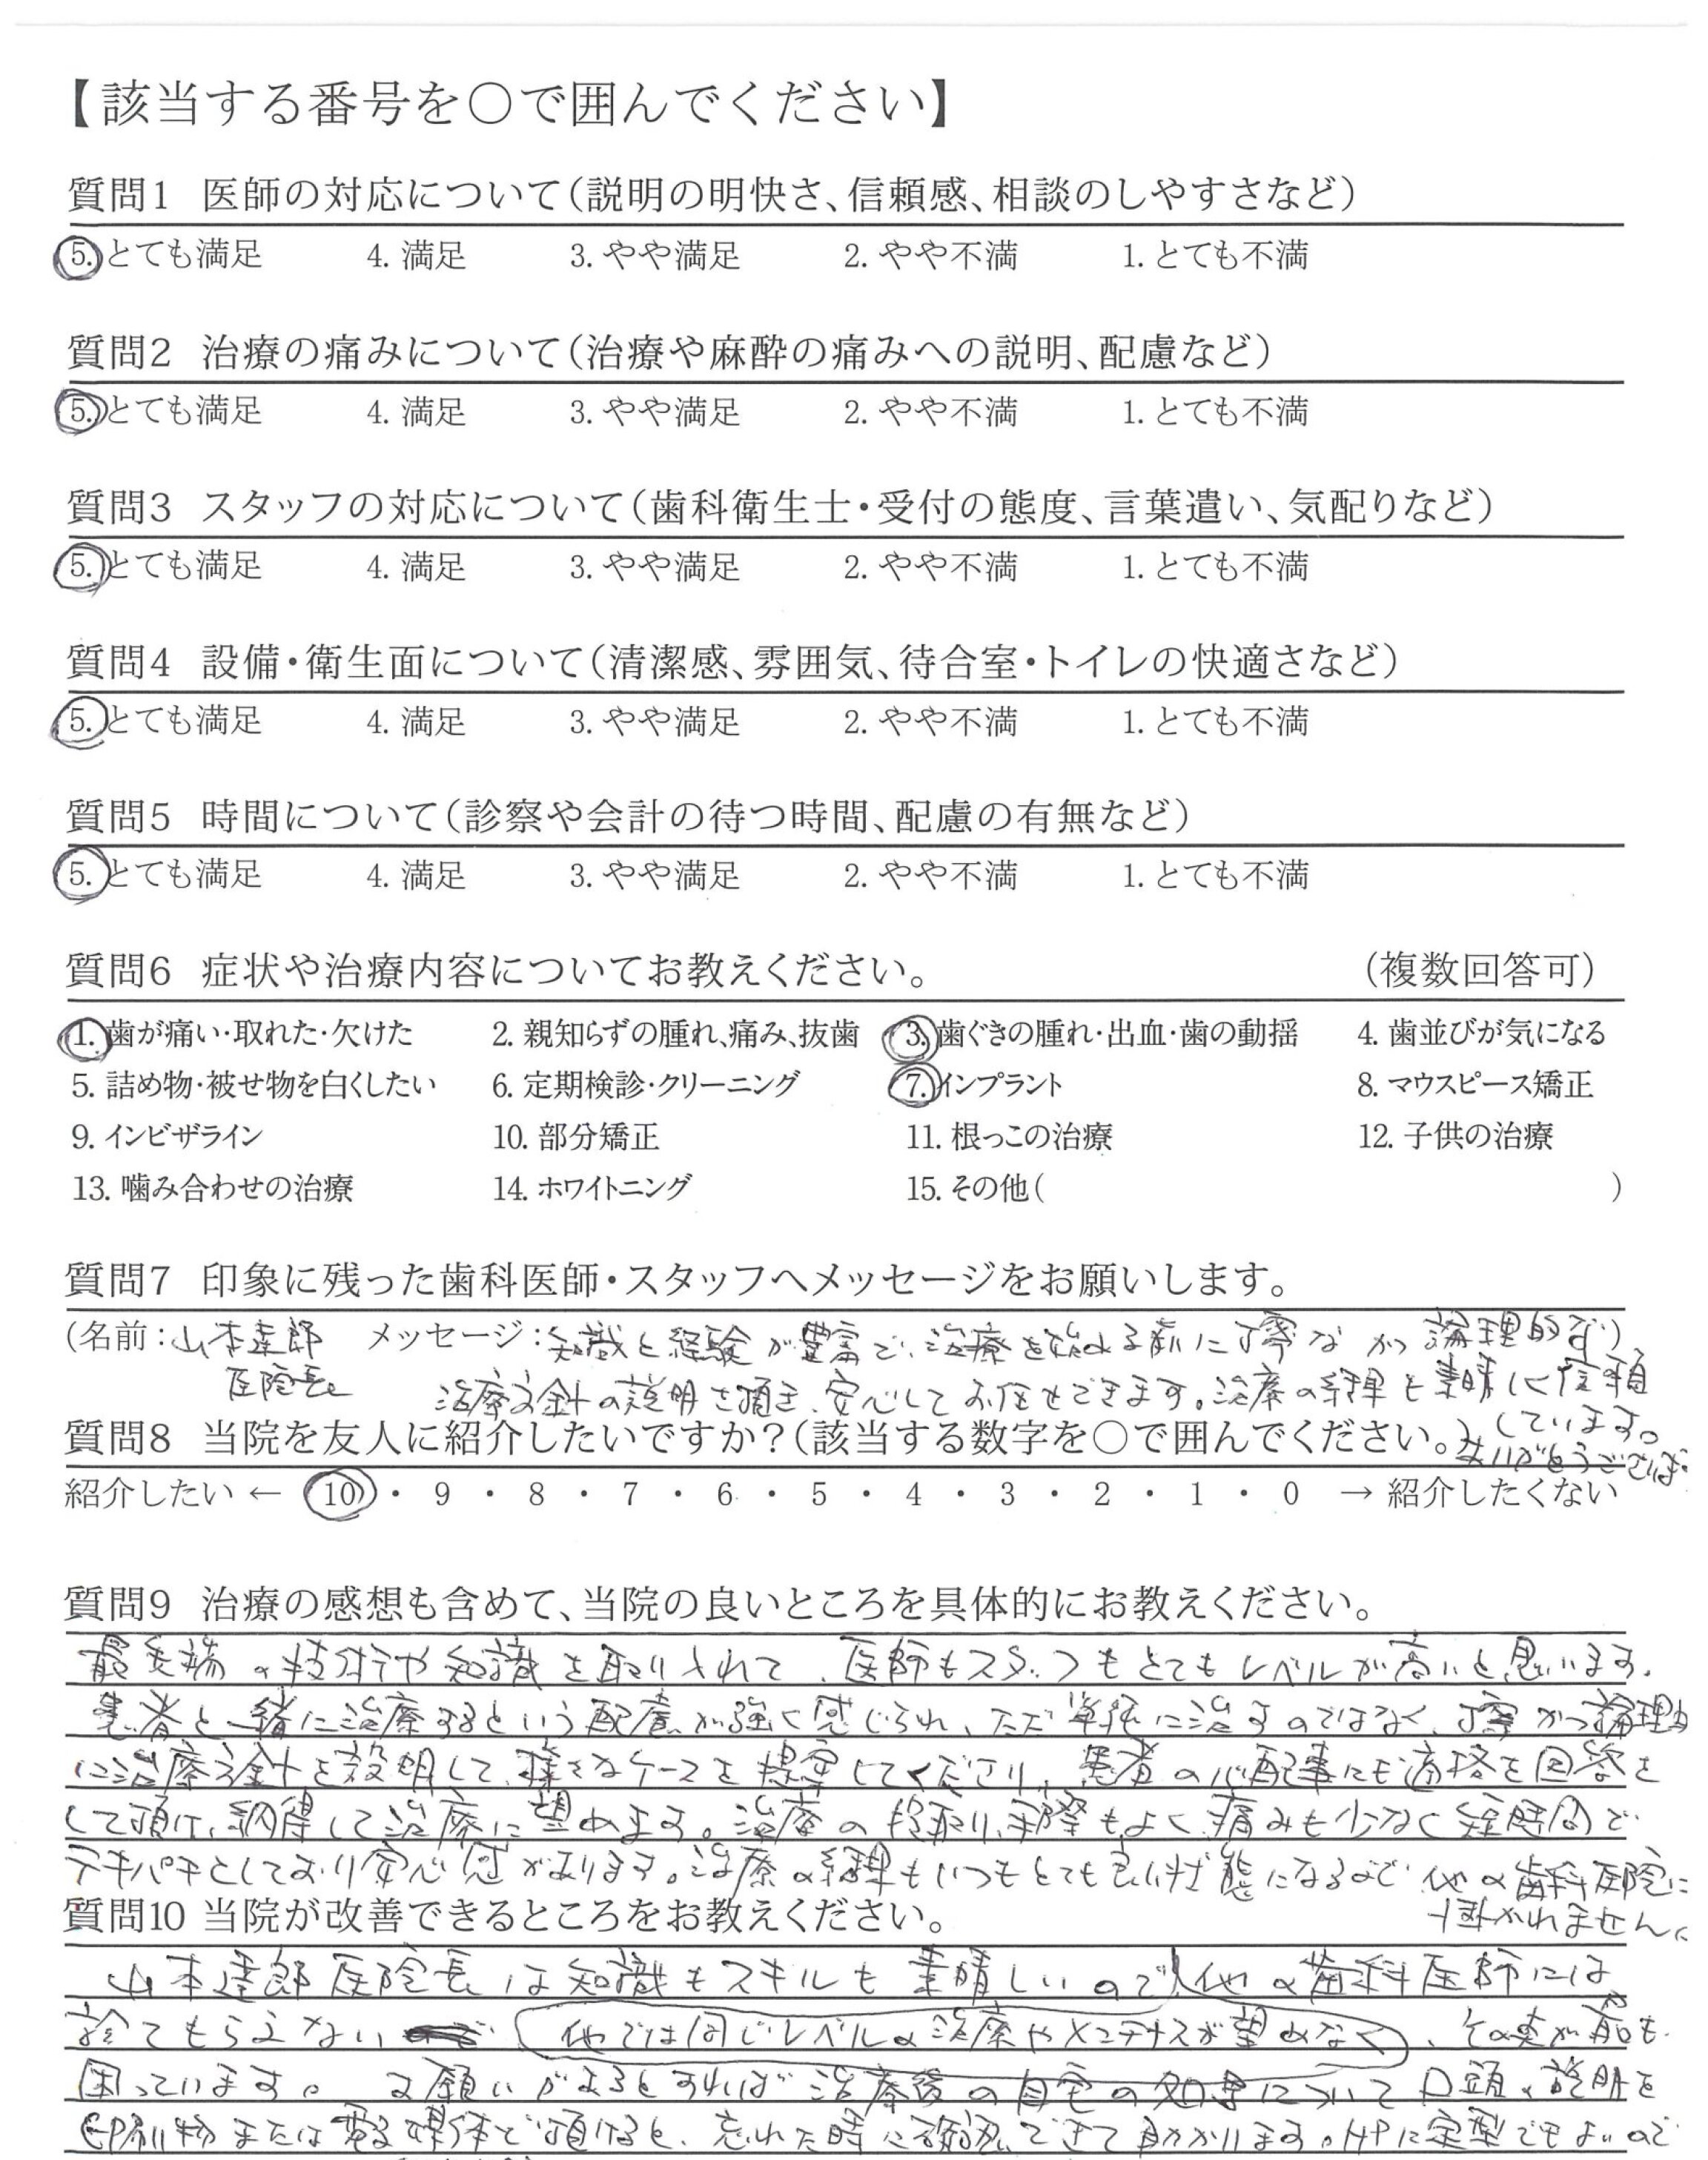 【該当する番号を〇で囲んでください】
質問1 医師の対応について(説明の明快さ、信頼感、相談のしやすさなど)
5. とても満足 4. 満足 3. やや満足 2. やや不満 1. とても不満
質問2 治療の痛みについて(治療や麻酔の痛みへの説明、配慮など)
5. とても満足 4. 満足 3. やや満足 2. やや不満 1. とても不満
質問3 スタッフの対応について(歯科衛生士・受付の態度、言葉遣い、気配りなど)
5. とても満足 4. 満足 3. やや満足 2. やや不満 1. とても不満
質問4 設備・衛生面について(清潔感、雰囲気、待合室・トイレの快適さなど)
5. とても満足 4. 満足 3. やや満足 2. やや不満 1. とても不満
質問5 時間について(診察や会計の待つ時間、配慮の有無など)
5. とても満足 4. 満足 3. やや満足 2. やや不満 1. とても不満
質問6 症状や治療内容についてお教えください。 (複数回答可)
1. 歯が痛い・取れた・欠けた 2. 親知らずの腫れ、痛み、抜歯 3. 歯ぐきの腫れ・出血・歯の動揺 4. 歯並びが気になる
5. 詰め物・被せ物を白くしたい 6. 定期検診・クリーニング 7. インプラント 8. マウスピース矯正
9. インビザライン 10. 部分矯正 11. 根っこの治療 12. 子供の治療
13. 噛み合わせの治療 14. ホワイトニング 15. その他( )
質問7 印象に残った歯科医師・スタッフへメッセージをお願いします。
(名前:山本達郎 メッセージ:知識と経験が豊富で、治療を始める前に丁寧なかつ論理的な)
医院長 治療方針の説明を頂き、安心してお任せできます。治療の結果も素晴しく信頼
しています。
質問8 当院を友人に紹介したいですか?(該当する数字を〇で囲んでください。)
ありがとうございます
紹介したい ← 10 ・ 9 ・ 8 ・ 7 ・ 6 ・ 5 ・ 4 ・ 3 ・ 2 ・ 1 ・ 0 → 紹介したくない
質問9 治療の感想も含めて、当院の良いところを具体的にお教えください。
最先端の技術や知識を取り入れて、医師もスタッフもとてもレベルが高いと思います。
患者と一緒に治療するという配慮が強く感じられ、ただ単純に治すのではなく、丁寧かつ論理的
に治療方針を説明して、様々なケースを提案してくださり、患者の心配事にも適格を回答を
して頂け、納得して治療に望めます。治療の段取り、手際もよく、痛みも少なく短時間で
テキパキとしており安心感があります。治療の結果もいつもとても良い状態になるので 他の歯科医院に
は行かれません。
質問10 当院が改善できるところをお教えください。
山本達郎医院長は知識もスキルも素晴しいので、他の歯科医師には
診てもらえない 他では同じレベルの治療やメンテナンスが望めなく、その点が最も
困っています。又願いがあるとすれば 治療後の自宅の処置について口頭の説明を
印刷物または電子媒体で頂けると、忘れた時に確認できて助かります。HPに定型でもよいので